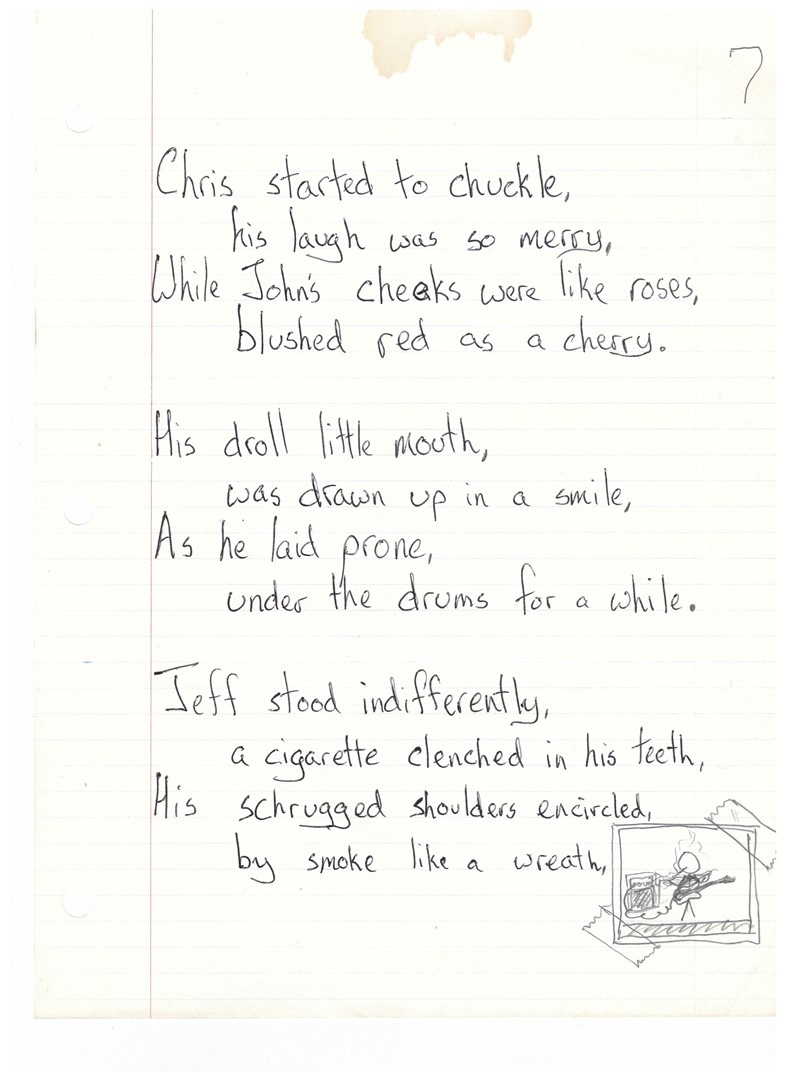 7
Chris started to chuckle,
his laugh was so merry,
While John's cheeks were like roses,
blushed red as a cherry.
His droll little mouth,
was drawn up in a smile,
As he laid prone,
under the drums for a while.
Jeff stood indifferently,
a cigarette clenched in his teeth,
His schrugged shoulders encircled,
by smoke like a wreath,